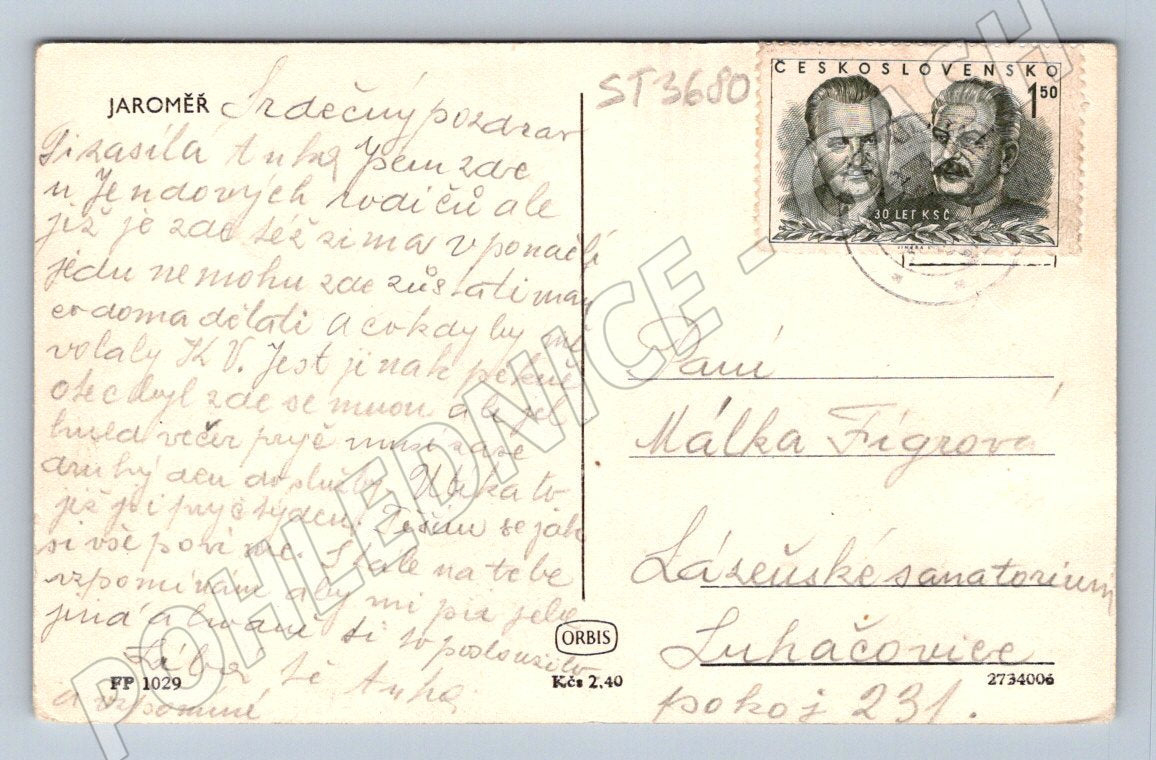 JAROMĚŘ
Srdečný pozdrav
Ti zasílá Anka Jsem zde
u Jendových rodičů ale
již je zde též zima v ponděli
jedu nemohu zde zůstati mám
co doma dělati A co kdyby mě
volaly K V. Jest jinak pěkně
otec byl zde se mnou ale jel
hned večer pryč musí zase
druhý den do služby. Utíká to
již jsi pryč týden. Těším se jak
si vše povíme. Stále na tebe
vzpomínám aby mi
jiná a hlavně ti to posloužilo
Líbá Tě Anka
a vzpomíná
FP 1029
ORBIS
Kčs 2,40
ST3680
ČESKOSLOVENSKO
1 50
30 LET KSČ
Paní
Málka Fígrová
Lázeňské sanatorium
Luhačovice
2734006
pokoj 231.
POHLEDNICE - CASH